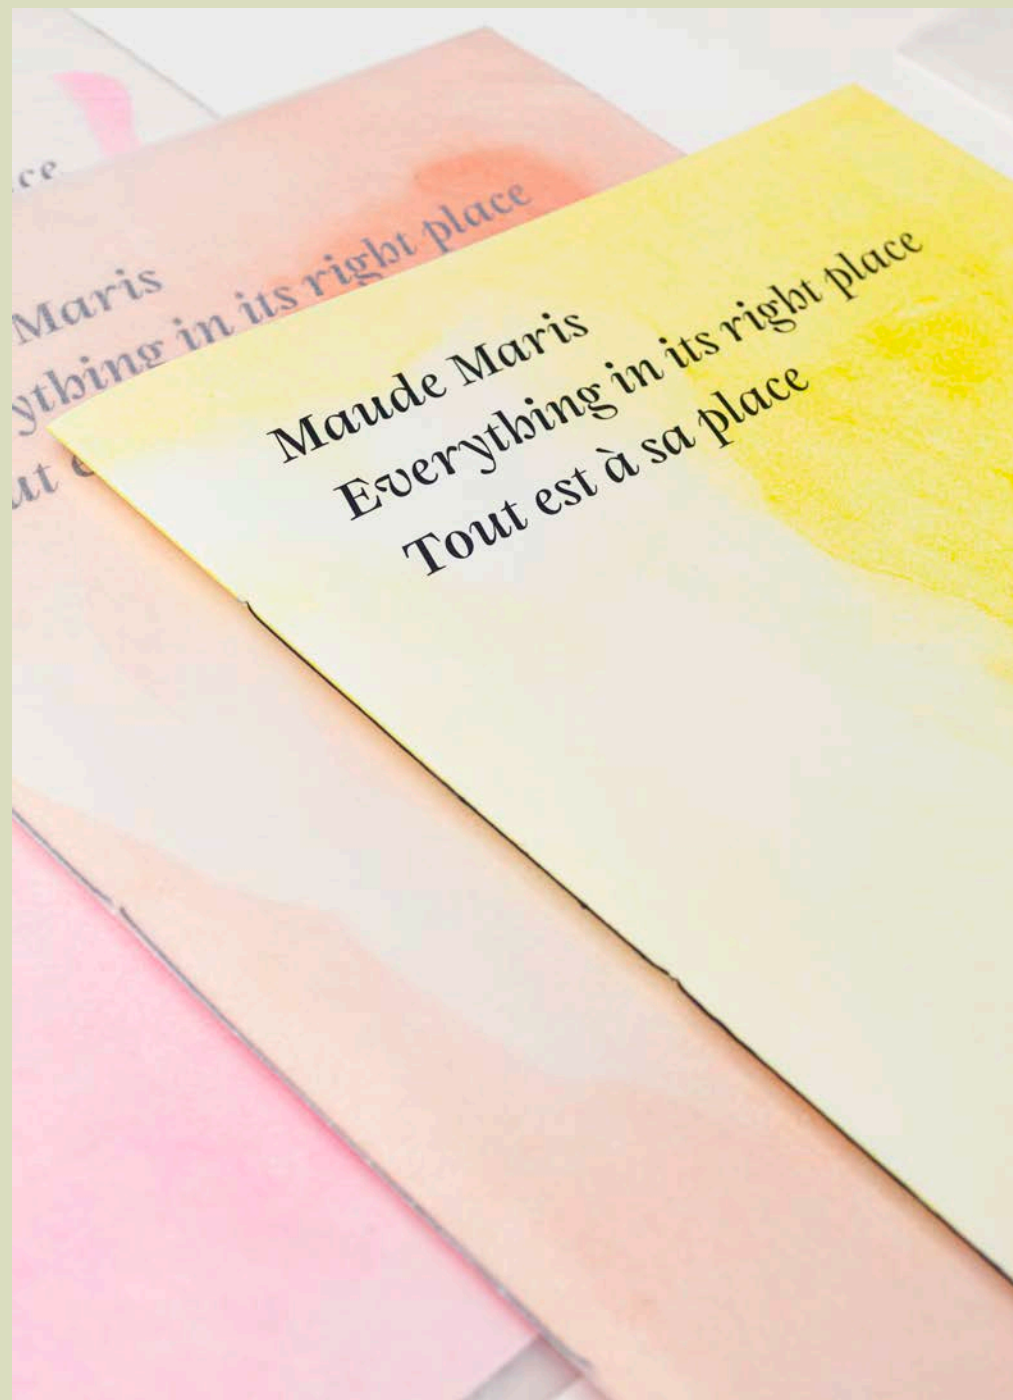 ce
Maris
ything in its right place
ut
Maude Maris
Everything in its right place
Tout est à sa place